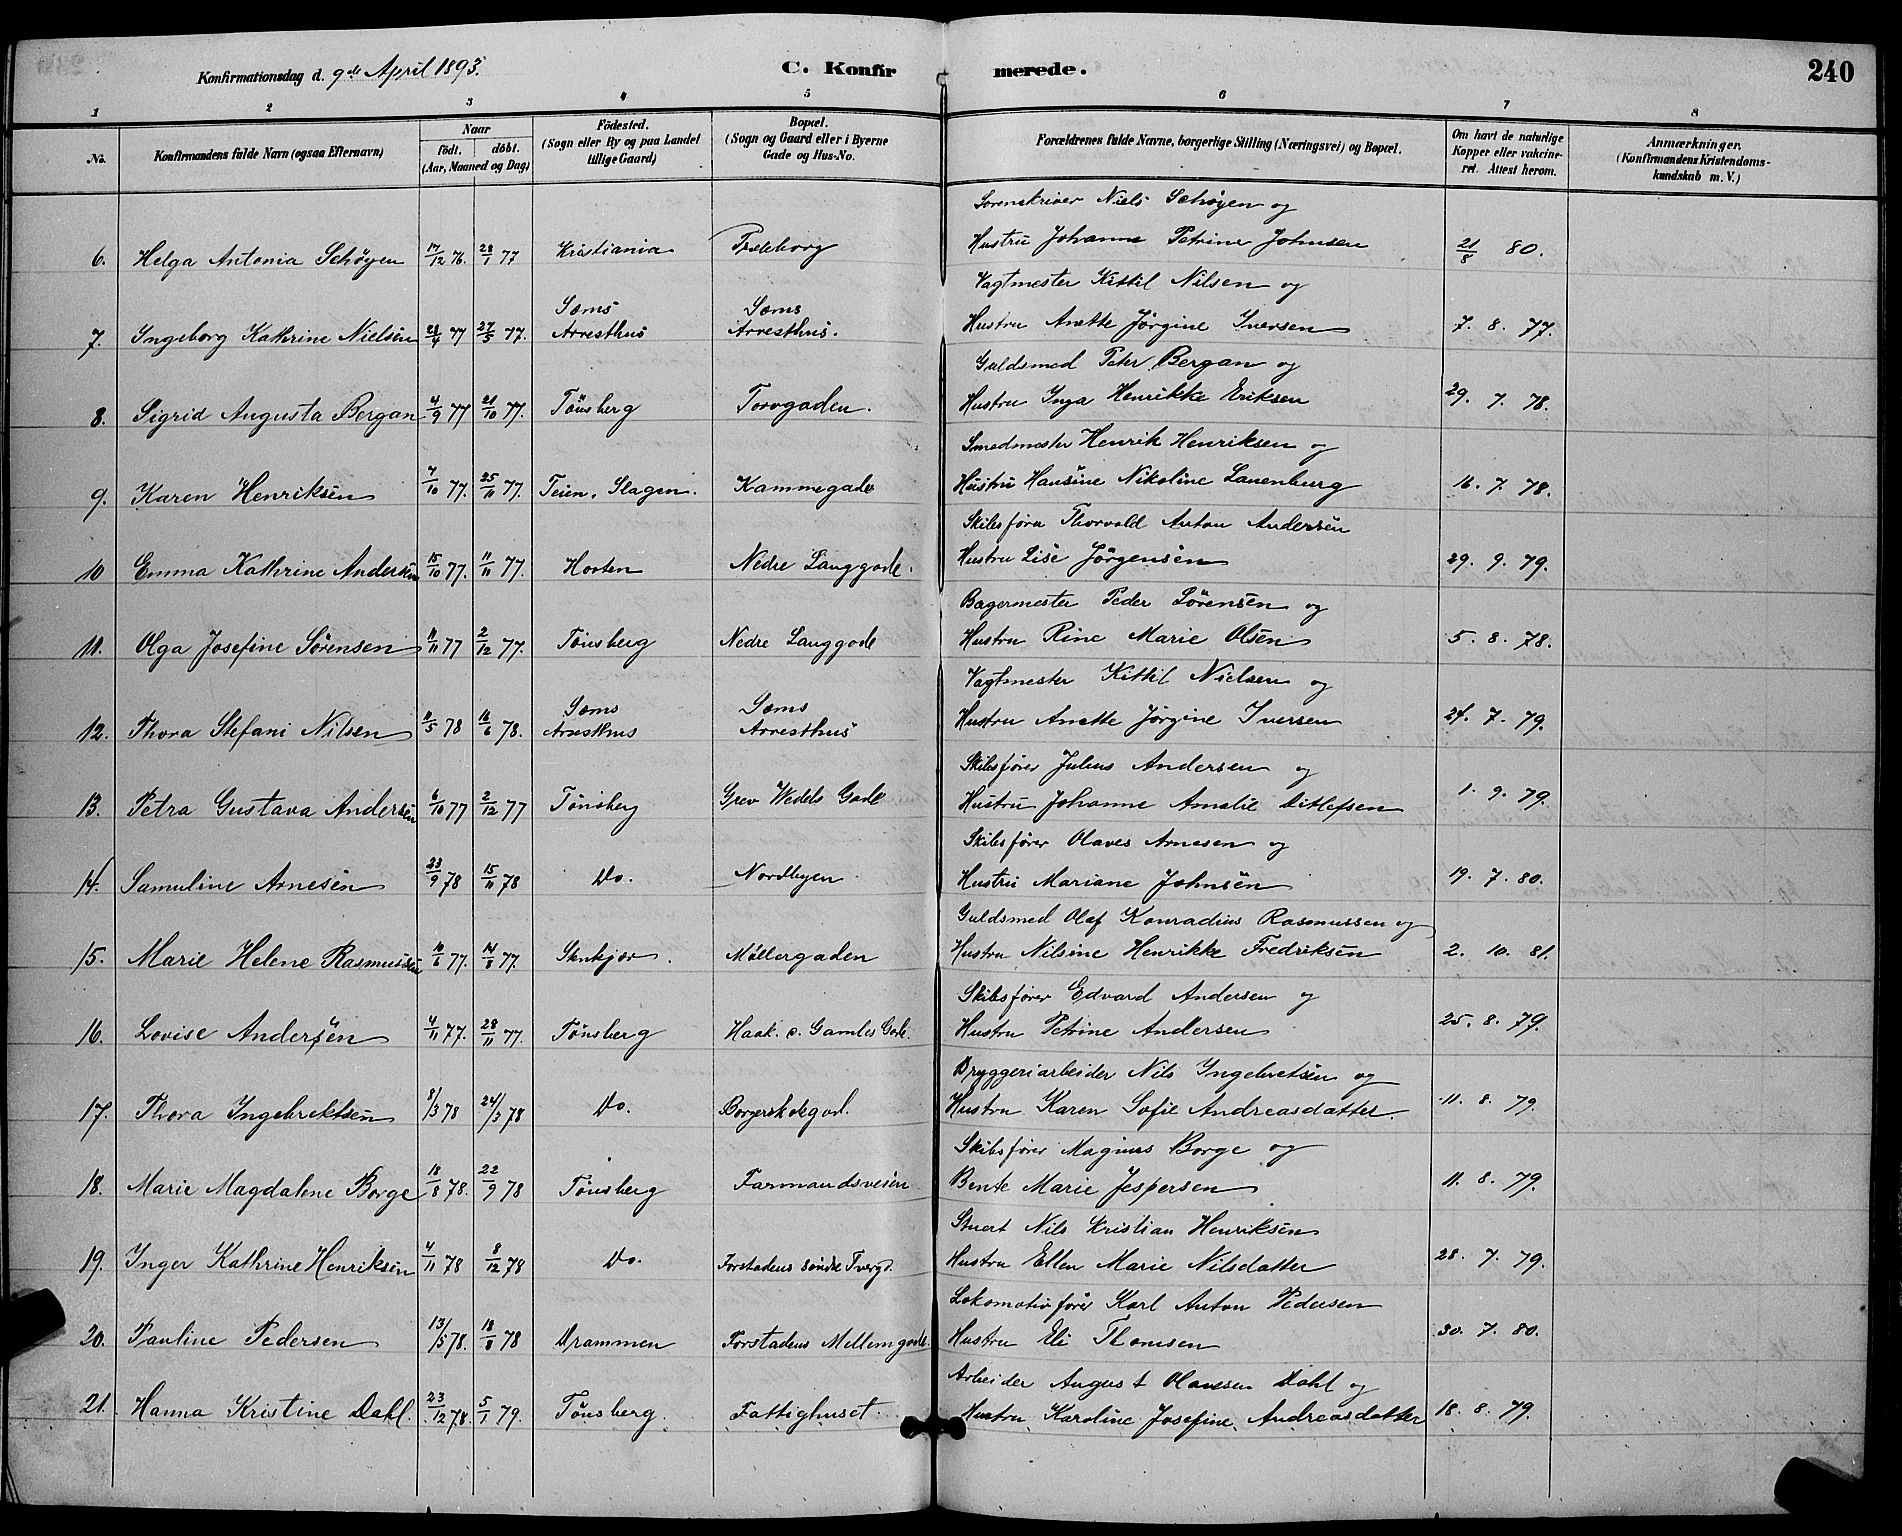 Konfirmationsdag d. 9de April 1893.
C. Konfir merede.
240
1 2 3 4 5 6 7 8
No.
Konfirmandens fulde Navn (ogsaa Efternavn)
Naar
født. døbt.
(Aar, Maaned og Dag)
Fødested.
(Sogn eller By og paa Landet
tillige Gaard)
Bopæl.
(Sogn og Gaard eller i Byerne
Gade og Hus-No.
Forældrenes fulde Navne, borgerlige Stilling (Næringsvei) og Bopæl.
Om havt de naturlige
Kopper eller vakcine-
ret. Attest herom.
Anmærkninger.
(Konfirmandens Kristendoms-
kundskab m. V.)
Sorenskriver Niels Schøyen og
6. Helga Antonia Schøyen 17/12 76. 28/1 77 Kristiania Træleborg Hustru Johanne Petrine Johnsen 21/8 80.
Vagtmester Kittil Nilsen og
Sems Sems
7. Ingeborg Kathrine Nielsen 28/4 77 27/5 77. Arresthus Arresthus. Hustru Anette Jørgine Iversen 7. 8. 77.
Guldsmed Peter Bergan og
8. Sigrid Augusta Bergan 4/9 77 21/10 77. Tönsberg Torvgaden. Hustru Inga Henrikke Eriksen 29. 7. 78.
Smedmester Henrik Henriksen og
9. Karen Henriksen 7/10 77. 25/11 77. Teien, Slagen. Kammegade Hustru Hansine Nikoline Lauenburg 16. 7. 78.
Skibsføra Thorvald Anton Andersen
10 Emma Kathrine Andersen 15/10 77. 11/11 77. Horten Nedre Langgade. Hustru Lise Jörgensen 29. 9. 79.
Bagermester Peder Sörensen og
11. Olga Josefine Sörensen 11/11 77 2/12 77. Tönsberg Nedre Langgade Hustru Rine Marie Olsen 5. 8. 78.
Vagtmester Kittil Nielsen og
Sems Sems
12. Thora Stefani Nilsen 11/5 78 16/6 78. Arresthus Arresthus Hustru Anette Jørgine Iversen 24. 7. 79.
Skibsfører Julius Andersen og
13. Petra Gustava Andersen 6/10 77 2/12 77 Tönsberg Grev Wedels Gade Hustru Johanne Amalie Ditlefsen 1. 9. 79.
Skibsfører Olaves Arnesen og
14. Samuline Arnesen 23/9 78 15/11 78 Do. Nordbyen Hustru Mariane Johnsen 19. 7. 80.
Guldsmed Olaf Konradius Rasmussen og
15. Marie Helene Rasmussen 10/6 77. 14/8 77. Stenkjær. Möllergaden Hustru Nilsine Henrikke Fredriksen 2. 10. 81.
Skibsfører Edvard Andersen og
16. Lovise Andersen 4/11 77. 28/11 77. Tönsberg Haak. d. Gamles Gade. Hustru Petrine Andersen 25. 8. 79.
Bryggeriarbeider Nils Ingebretsen og
17. Thora Ingebrektsen 8/3 78 24/3 78 Do. Borgerskolegad. Hustru Karen Sofie Andreasdatter. 11. 8. 79.
Skibsfører Magnus Borge og
18. Marie Magdalene Borge 18/8 78. 22/9 78 Tönsberg Farmandsveien Bente Marie Jespersen 11. 8. 79.
Stuert Nils Kristian Henriksen
19. Inger Kathrine Henriksen 4/11 78 8/12 78 Do. Forstadens søndre Tvergd. Hustru Ellen Marie Nilsdatter 28. 7. 79.
Lokomotivfører Karl Anton Pedersen
20. Pauline Pedersen 13/5 78. 18/8 78 Drammen Forstadens Mellemgade. Hustru Eli Thomsen 30. 7. 80.
Arbeider August Olavesen Dahl og
21. Hanna Kristine Dahl. 23/12 78. 5/1 79. Tönsberg. Fattighuset. Hustru Karoline Josefine Andreasdatter 18. 8. 79.